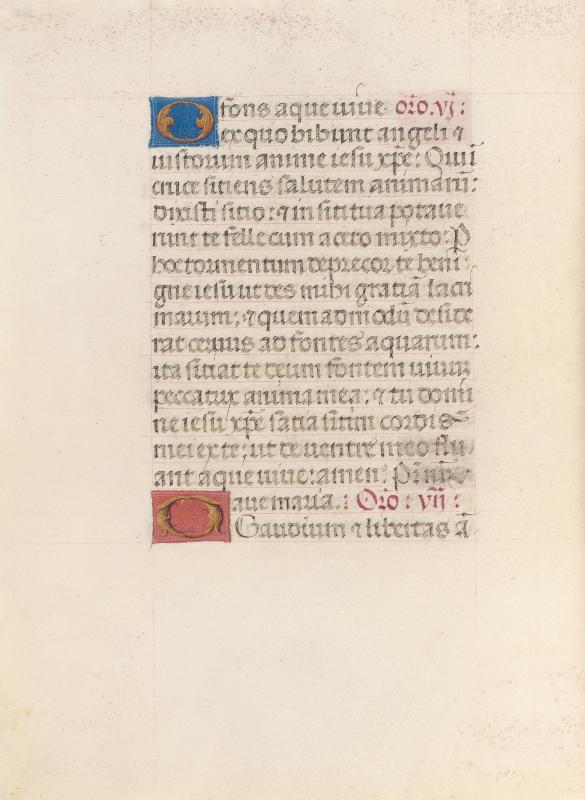 O fons aque uiue. oro. vj:
ex quo bibunt angeli ⁊
iustorum anime iesu xp̄e: Qui ī
cruce sitiens salutem animarū:
dixisti sitio: ⁊ in siti tua potaue
runt te felle cum aceto mixto: P
hoc tormentum deprecor te beni:
gne iesu ut des mihi gratiā lacri
marum: ⁊ quemadmodū deside
rat ceruus ad fontes aquarum:
ita sitiat te deum fontem uiuum
peccatrix anima mea: ⁊ tu domi
ne iesu xp̄e satia sitim cordis
mei ex te: ut de uentre meo flu
ant aque uiue: amen: Pr̄ nr̄
aue maria.: Orō: vij:
O Gaudium ⁊ libertas ā